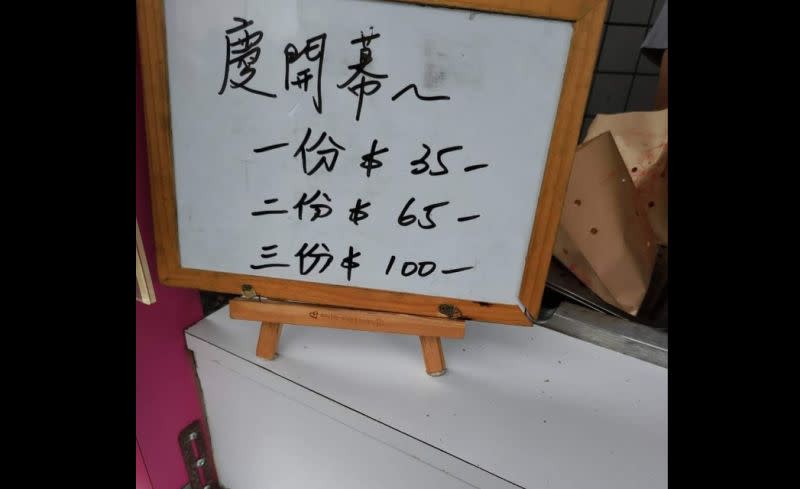 慶開幕~
一份$ 35-
二份$ 65-
三份$ 100-